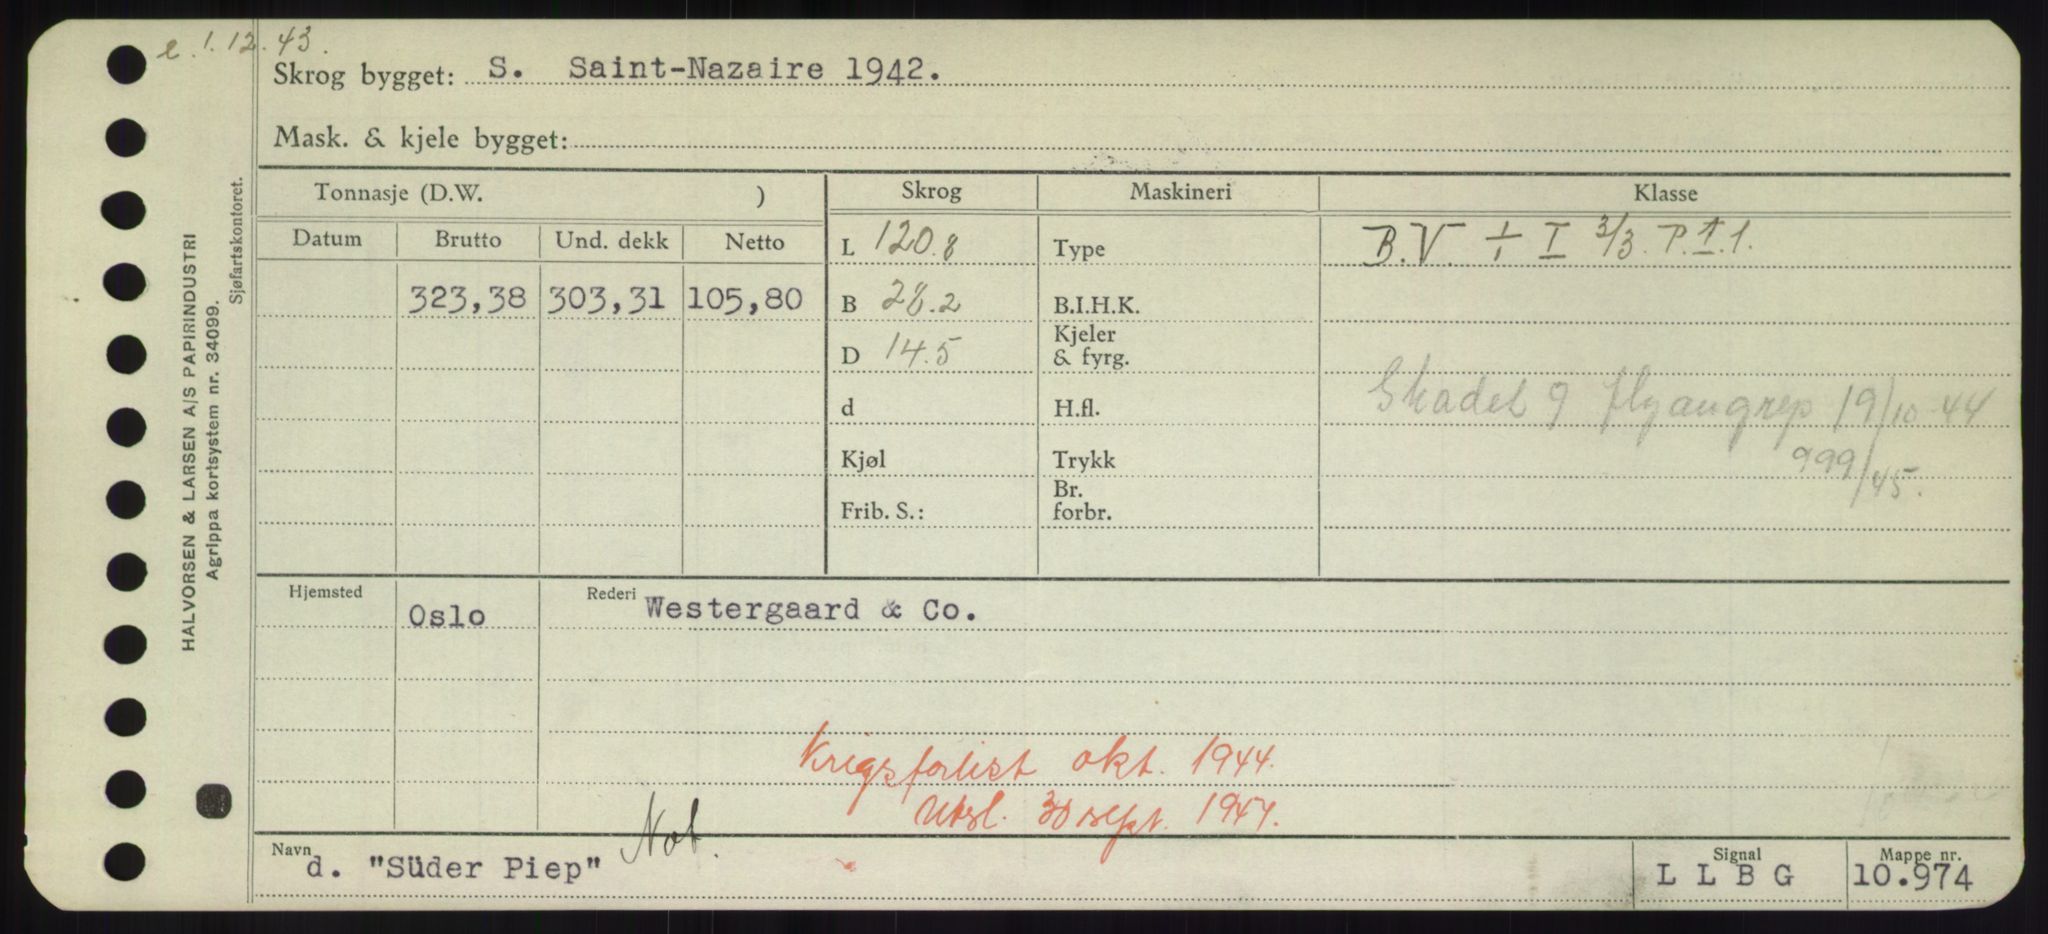 e. 1.12.43.
Skrog bygget: S. Saint-Nazaire 1942.
Mask. & kjele bygget:
Tonnasje (D.W. )
Skrog Maskineri Klasse
Datum Brutto Und. dekk Netto
L 120.8 Type B.V. I 3/3. P. 1.
323,38 303,31 105,80 B 28.2 B.I.H.K.
D 14.5 Kjeler & fyrg.
d H.fl. Skadet flyangrep 19/10 44
Kjøl Trykk 999/45.
Frib. S.: Br. forbr.
Hjemsted Oslo Rederi Westergaard & Co.
Krigsforlist okt. 1944.
30 sept. 1947.
Not.
Navn d. "Süder Piep" Signal L L B G Mappe nr. 10.974
HALVORSEN & LARSEN A/S PAPIRINDUSTRI
Agrippa kortsystem nr. 34099.
Sjøfartskontoret.